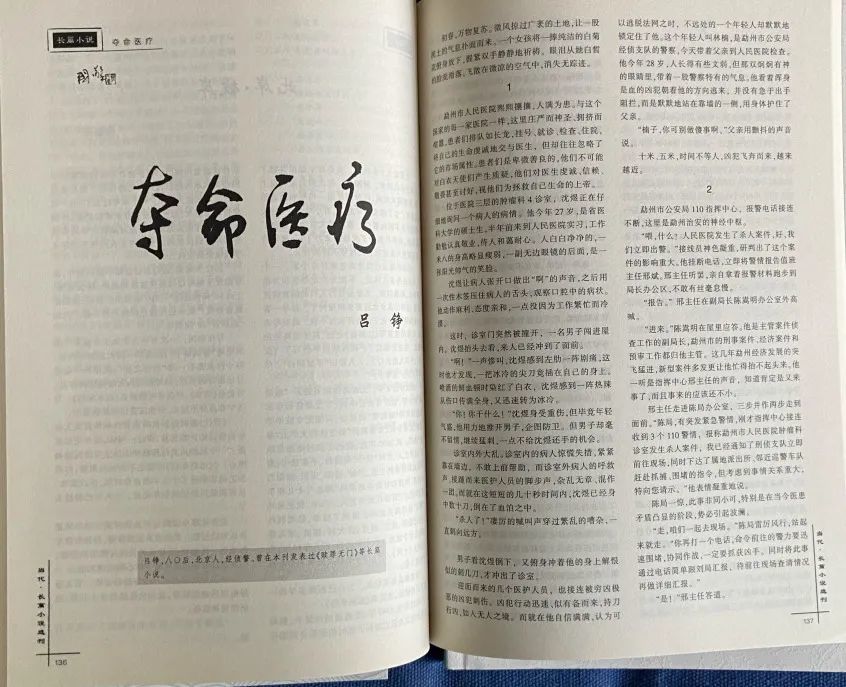 长篇小说
夺命医疗
夺命医疗
吕 铮
吕铮,八〇后,北京人,经侦警,曾在本刊发表过《赎罪无门》等长篇
小说。
当代·长篇小说选刊
136
初春,万物复苏。微风掠过广袤的土地,让一股
土的气息扑面而来。一个女孩将一捧纯白的白菊
俯身放下,握紧双手静静地祈祷。眼泪从她白皙
的脸庞滑落,飞散在微凉的空气中,消失无踪迹。
1
勐州市人民医院熙熙攘攘,人满为患。与这个
国家的每一家医院一样,这里庄严而神圣、拥挤而
喧嚣,患者们排队如长龙、挂号、就诊、检查、住院,
将自己的生命虔诚地交与医生,但却往往忽略了
它的市场属性。患者们是卑微善良的,他们不可能
对白衣天使们产生质疑,他们对医生虔诚、信赖、
甚至讨好,视他们为拯救自己生命的上帝。
位于医院三层的肿瘤科4诊室,沈煜正在仔
细地询问一个病人的病情。他今年27岁,是省医
科大学的硕士生,半年前来到人民医院实习,工作
勤勉认真敬业,待人和蔼耐心。人白白净净的,一
米八的身高略显瘦弱,一副无边眼镜的后面,是一
张阳光帅气的笑脸。
沈煜让病人张开口做出“啊”的声音,之后用
一次性木签压住病人的舌头,观察口腔中的病状。
他动作麻利、态度亲和,一点没因为工作繁忙而冷
漠。
这时,诊室门突然被撞开,一名男子闯进屋
内。沈煜抬头去看,来人已经冲到了面前。
“啊!”一声惨叫,沈煜感到左肋一阵剧痛,这
时他才发现,一把冰冷的尖刀竟插在自己的身上。
喷洒的鲜血顿时染红了白衣,沈煜感到一阵热辣
从伤口传满全身,又迅速转为冰冷。
“你!你干什么!”沈煜身受重伤,但毕竟年轻
气盛,他用力地推开男子,企图防卫。但男子却毫
不留情,继续猛刺,一点不给沈煜还手的机会。
诊室内外大乱,诊室内的病人惊慌失措,紧紧
靠在墙边,不敢上前帮助,而诊室外病人的呼救
声、接踵而来医护人员的脚步声,杂乱无章、混作
一团。而就在这短短的几十秒时间内,沈煜已经身
中数十刀,倒在了血泊之中。
“杀人了!”凄厉的喊叫声穿过繁乱的嘈杂,一
直刺向远方。
男子看沈煜倒下,又俯身冲着他的身上解恨
似的刺几刀,才冲出了诊室。
迎面而来的几个医护人员,也接连被穷凶极
恶的凶犯刺伤。凶犯行动迅速、似有备而来,持刀
行凶,如入无人之境。而就在他自信满满、认为可
以逃脱法网之时,不远处的一个年轻人却默默地
锁定住了他。这个年轻人叫林楠,是勐州市公安局
经侦支队的警察,今天带着父亲到人民医院检查。
他今年28岁,人长得有些文弱,但那双炯炯有神
的眼睛里,带着一股警察特有的气息。他看着浑身
是血的凶犯朝着他的方向逃来,并没有急于出手
阻拦,而是默默地站在靠墙的一侧,用身体护住了
父亲。
“楠子,你可别做傻事啊。”父亲用颤抖的声音
说。
十米、五米,时间不等人,凶犯飞奔而来,越来
越近。
2
勐州市公安局110指挥中心,报警电话接连
不断,这里是勐州治安的神经中枢。
“喂,什么!人民医院发生了杀人案件,好,我
们立即出警。”接线员神色凝重,研判出了这个案
件的影响重大。他挂断电话,立即将警情报告值班
主任邢斌,邢主任听罢,亲自拿着报警材料跑步到
局长办公区,不敢有丝毫怠慢。
“报告。”邢主任在副局长陈嵩明办公室外高
喊。
“进来。”陈嵩明在屋里应答。他是主管案件侦
查工作的副局长,勐州市的刑事案件、经济案件和
预审工作都归他主管。这几年勐州经济发展的突
飞猛进,新型案件多发更让他忙得抬不起头来。他
一听是指挥中心邢主任的声音,知道肯定是又来
事了,而且事来的应该还不小。
邢主任走进陈局办公室,三步并作两步走到
面前。“陈局,有突发紧急警情,刚才指挥中心接连
收到3个110警情,报称勐州市人民医院肿瘤科
诊室发生杀人案件,我已经通知了刑侦支队立即
前往现场,同时下达了属地派出所、邻近巡警车队
赶赴抓捕、围堵的指令,但考虑到事情关系重大,
特向您请示。”他表情凝重地说。
陈局一惊,此事非同小可,特别是在当今医患
矛盾凸显的阶段,势必引起波澜。
“走,咱们一起去现场。”陈局雷厉风行,站起
来就走。“你再打一个电话,命令前往的警力要迅
速围堵,协同作战,一定要抓获凶手。同时将此事
通过电话简单跟刘局汇报,待前往现场查清情况
再做详细汇报。”
“是!”邢主任答道。
当代·长篇小说选刊
137